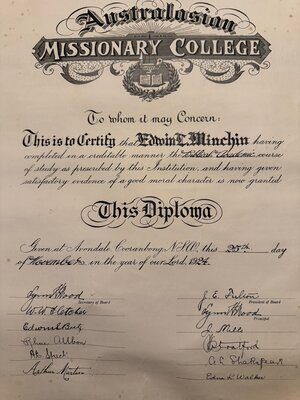 Australasian
MISSIONARY COLLEGE
To whom it may Concern:
This is to Certify that Edwin L. Minchin having
completed in a creditable manner the Biblical Academic course
of study as prescribed by this Institution, and having given
satisfactory evidence of a good moral character is now granted
This Diploma
Given at Avondale Cooranbong, N.S.W. this 25th day
of November in the year of our Lord, 1924
Lynn H Wood
Secretary of Board
J. E. Fulton
President of Board
Lynn H Wood
Principal
Arthur Martin
A. E. Shakespear
Edna L Walker